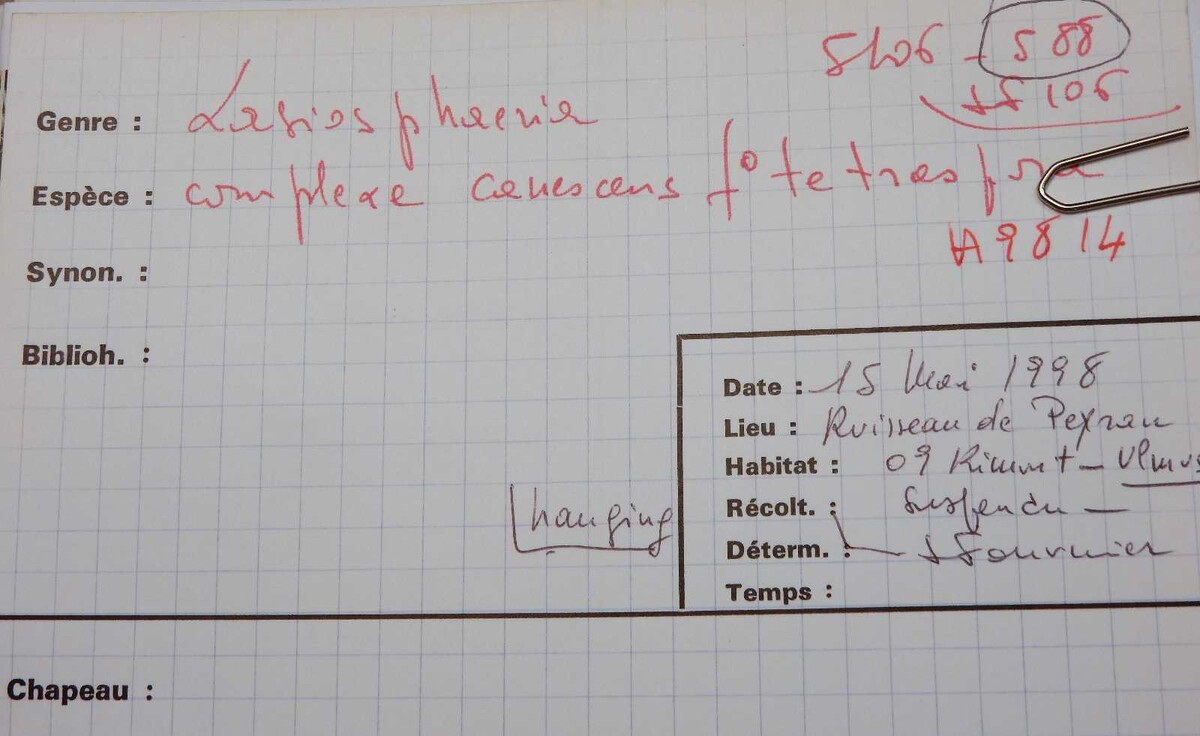 5106 - 588
JF 106
Genre : Lasiosphaeria
Espèce : complexe canescens fo tetraspora
LA 9814
Synon. :
Biblioh. :
Date : 15 Mai 1998
Lieu : Ruisseau de Peyrau
Habitat : 09 Rimont - Ulmus
hanging
Récolt. : Suspendu -
Déterm. : J Fournier
Temps :
Chapeau :